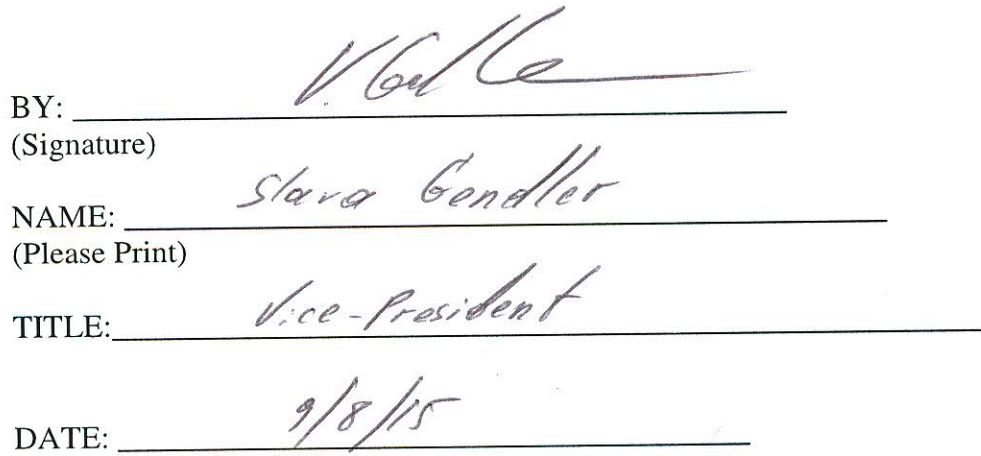 BY: V. Gendler
(Signature)
NAME: Slava Gendler
(Please Print)
TITLE: Vice-President
DATE: 9/8/15